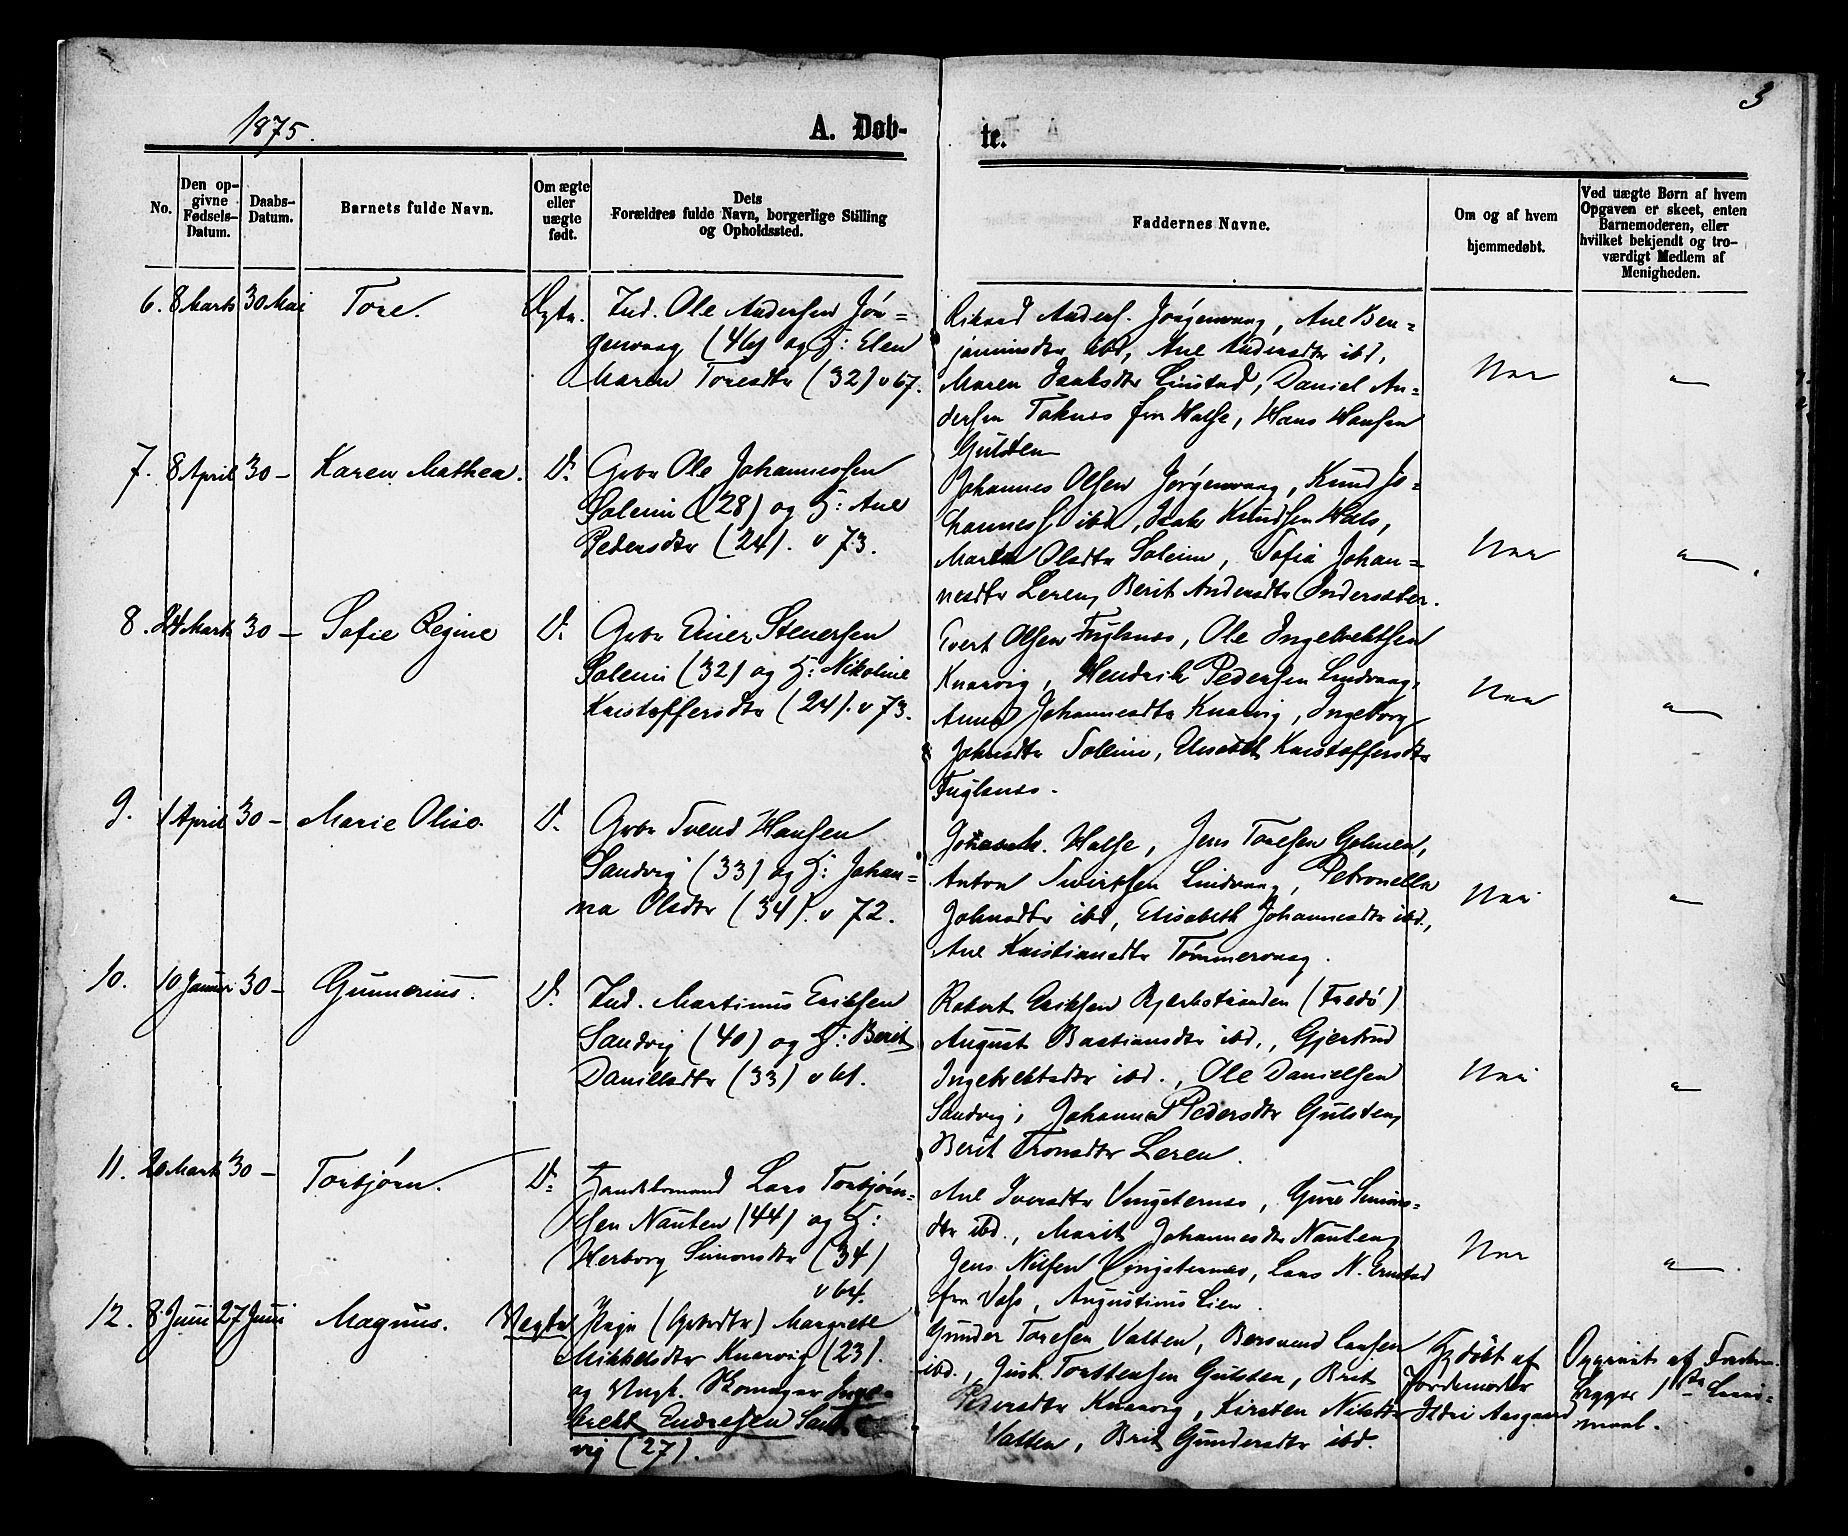 3
1875.
A. Døb-
te.
No.
Den op-
givne
Fødsels-
Datum.
Daabs-
Datum.
Barnets fulde Navn.
Om ægte
eller
uægte
født.
Dets
Forældres fulde Navn, borgerlige Stilling
og Opholdssted.
Faddernes Navne.
Om og af hvem
hjemmedøbt.
Ved uægte Børn af hvem
Opgaven er skeet, enten
Barnemoderen, eller
hvilket bekjendt og tro-
værdigt Medlem af
Menigheden.
6. 8 Marts 30 Mai Tore. Ægte. Ind. Ole Andersen Jør-
genvaag (46) og H: Elen
Maren Toresdtr (32) v 67.
Rikard Anders. Jørgenvaag, Ane Ben-
jaminsdtr ibd, Ane Andersdtr ibd,
Maren Isaksdtr Linstad, Daniel An-
dersen Taknes fra Halse, Hans Hansen
Gulsten
Nei
"
7. 8 April 30 - Karen Mathea. D. Gbr Ole Johannessen
Soleim (28) og H: Ane
Pedersdtr (24). v 73.
Johannes Olsen Jørgenvaag, Knud Jo-
hanness ibd, Isak Knudsen Hals,
Marta Olsdtr Soleim, Sofia Johan-
nesdtr Leren, Berit Andersdtr
Nei
"
8. 24 Marts 30 - Sofie Regine D. Gbr Einer Steversen
Soleim (32) og H: Nikoline
Kristoffersdtr (24). v 73.
Evert Olsen Fuglenes, Ole Ingebrektsen
Knarvig, Hendrik Pedersen Lindvaag,
Anne Johannesdtr Knarvig, Ingeborg
Johnsdtr Soleim, Elisabet Kristoffersdtr
Fuglenes.
Nei
"
9. 1 April 30 - Marie Olise. D. Gbr Svend Hansen
Sandvig (33) og H: Johan-
na Olsdtr (34). v 72.
Halse, Jens Toresen Golmen,
Anton Sivertsen Lindvaag, Petronella
Johnsdtr ibd, Elisabeth Johannesdtr ibd.,
Ane Kristiansdtr Tømmervaag.
Nei
"
10. 10 Januar 30 - Gunnerius. D. Ind. Martinus Eriksen
Sandvig (40) og H: Berit
Danielsdtr (33) v 61.
Robert Eriksen Bjerkstranden (Fredø)
August Bastiansdtr ibd., Gjertrud
Ingebrektsdtr ibd., Ole Danielsen
Sandvig, Johanna Pedersdtr Gulsten,
Berit Tronsdtr Leren.
Nei
"
11. 20 Marts 30 - Torbjørn. D. Handelsmand Lars Torbjørn-
sen Nausten (44) og H:
Herborg Simonsdtr (34)
v 64.
Ane Iversdtr Vingsternes, Guri Simons-
dtr ibd., Marit Johannesdtr Nausten,
Jens Nilsen Vingsternes, Lars N.
fra Vos, Augustinus Lien.
Nei
"
12. 8 Juni 27 Juni Magnus. Uægte Pige (Gbrdtr) Margrete
Mikkelsdtr Knarvig (23).
og Ungk. Skomager Inge-
brekt Endresen Sand-
vig (27).
Gunder Toresen Valten, Bersvend Larsen
ibd., Just Torstensen Gulsten, Brit
Pedersdtr Knarvig, Kirsten Nilsdtr
Valten, Brit Gundersdtr ibd.
Hjdøbt af
Jordemoder
Ildri Aasgaard
Opgivet af Forlæ-
gger 1ste Leier-
maal.